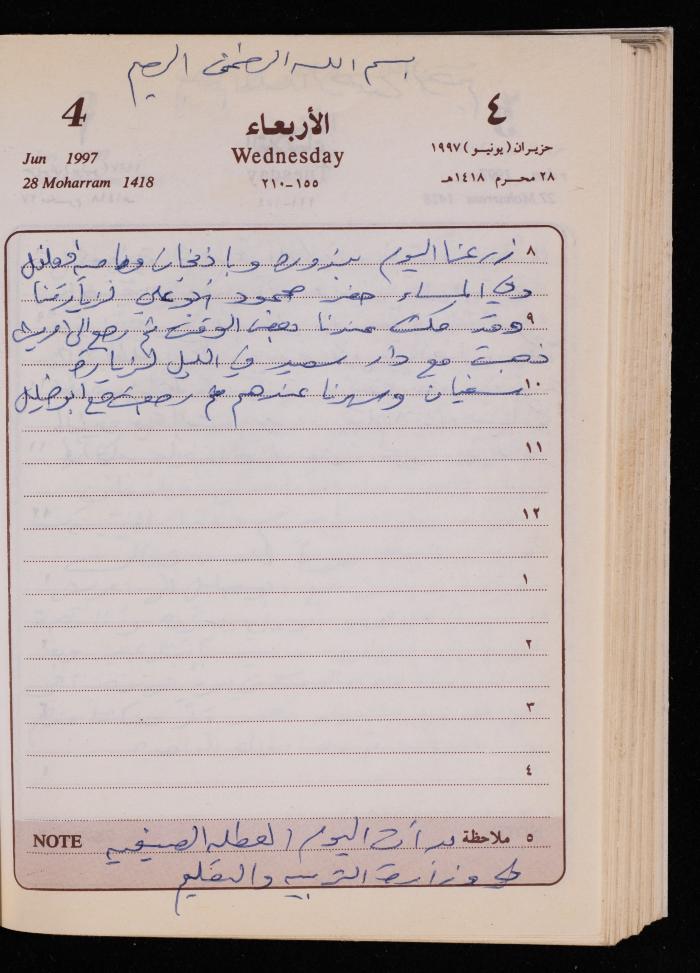 بسم الله الرحمن الرحيم
4 الأربعاء ٤
Jun 1997 Wednesday حزيران (يونيو) ١٩٩٧
28 Moharram 1418 ٢١٠-١٥٥ ٢٨ محرم ١٤١٨هـ
٨ زرعنا اليوم بندوره وباذنجان
وفي المساء حضر محمود ابو علي لزيارتنا
٩ وقد مكث عندنا بعض الوقت ثم رجع الى
ذهبت مع دار سعيد في الليل لزيارة
١٠ سفيان وسهرنا عندهم ثم رجعت مع ابو خليل
١١
١٢
١
٢
٣
٤
NOTE ٥ ملاحظة بدأت اليوم العطله الصيفيه
في وزارة التربيه والتعليم